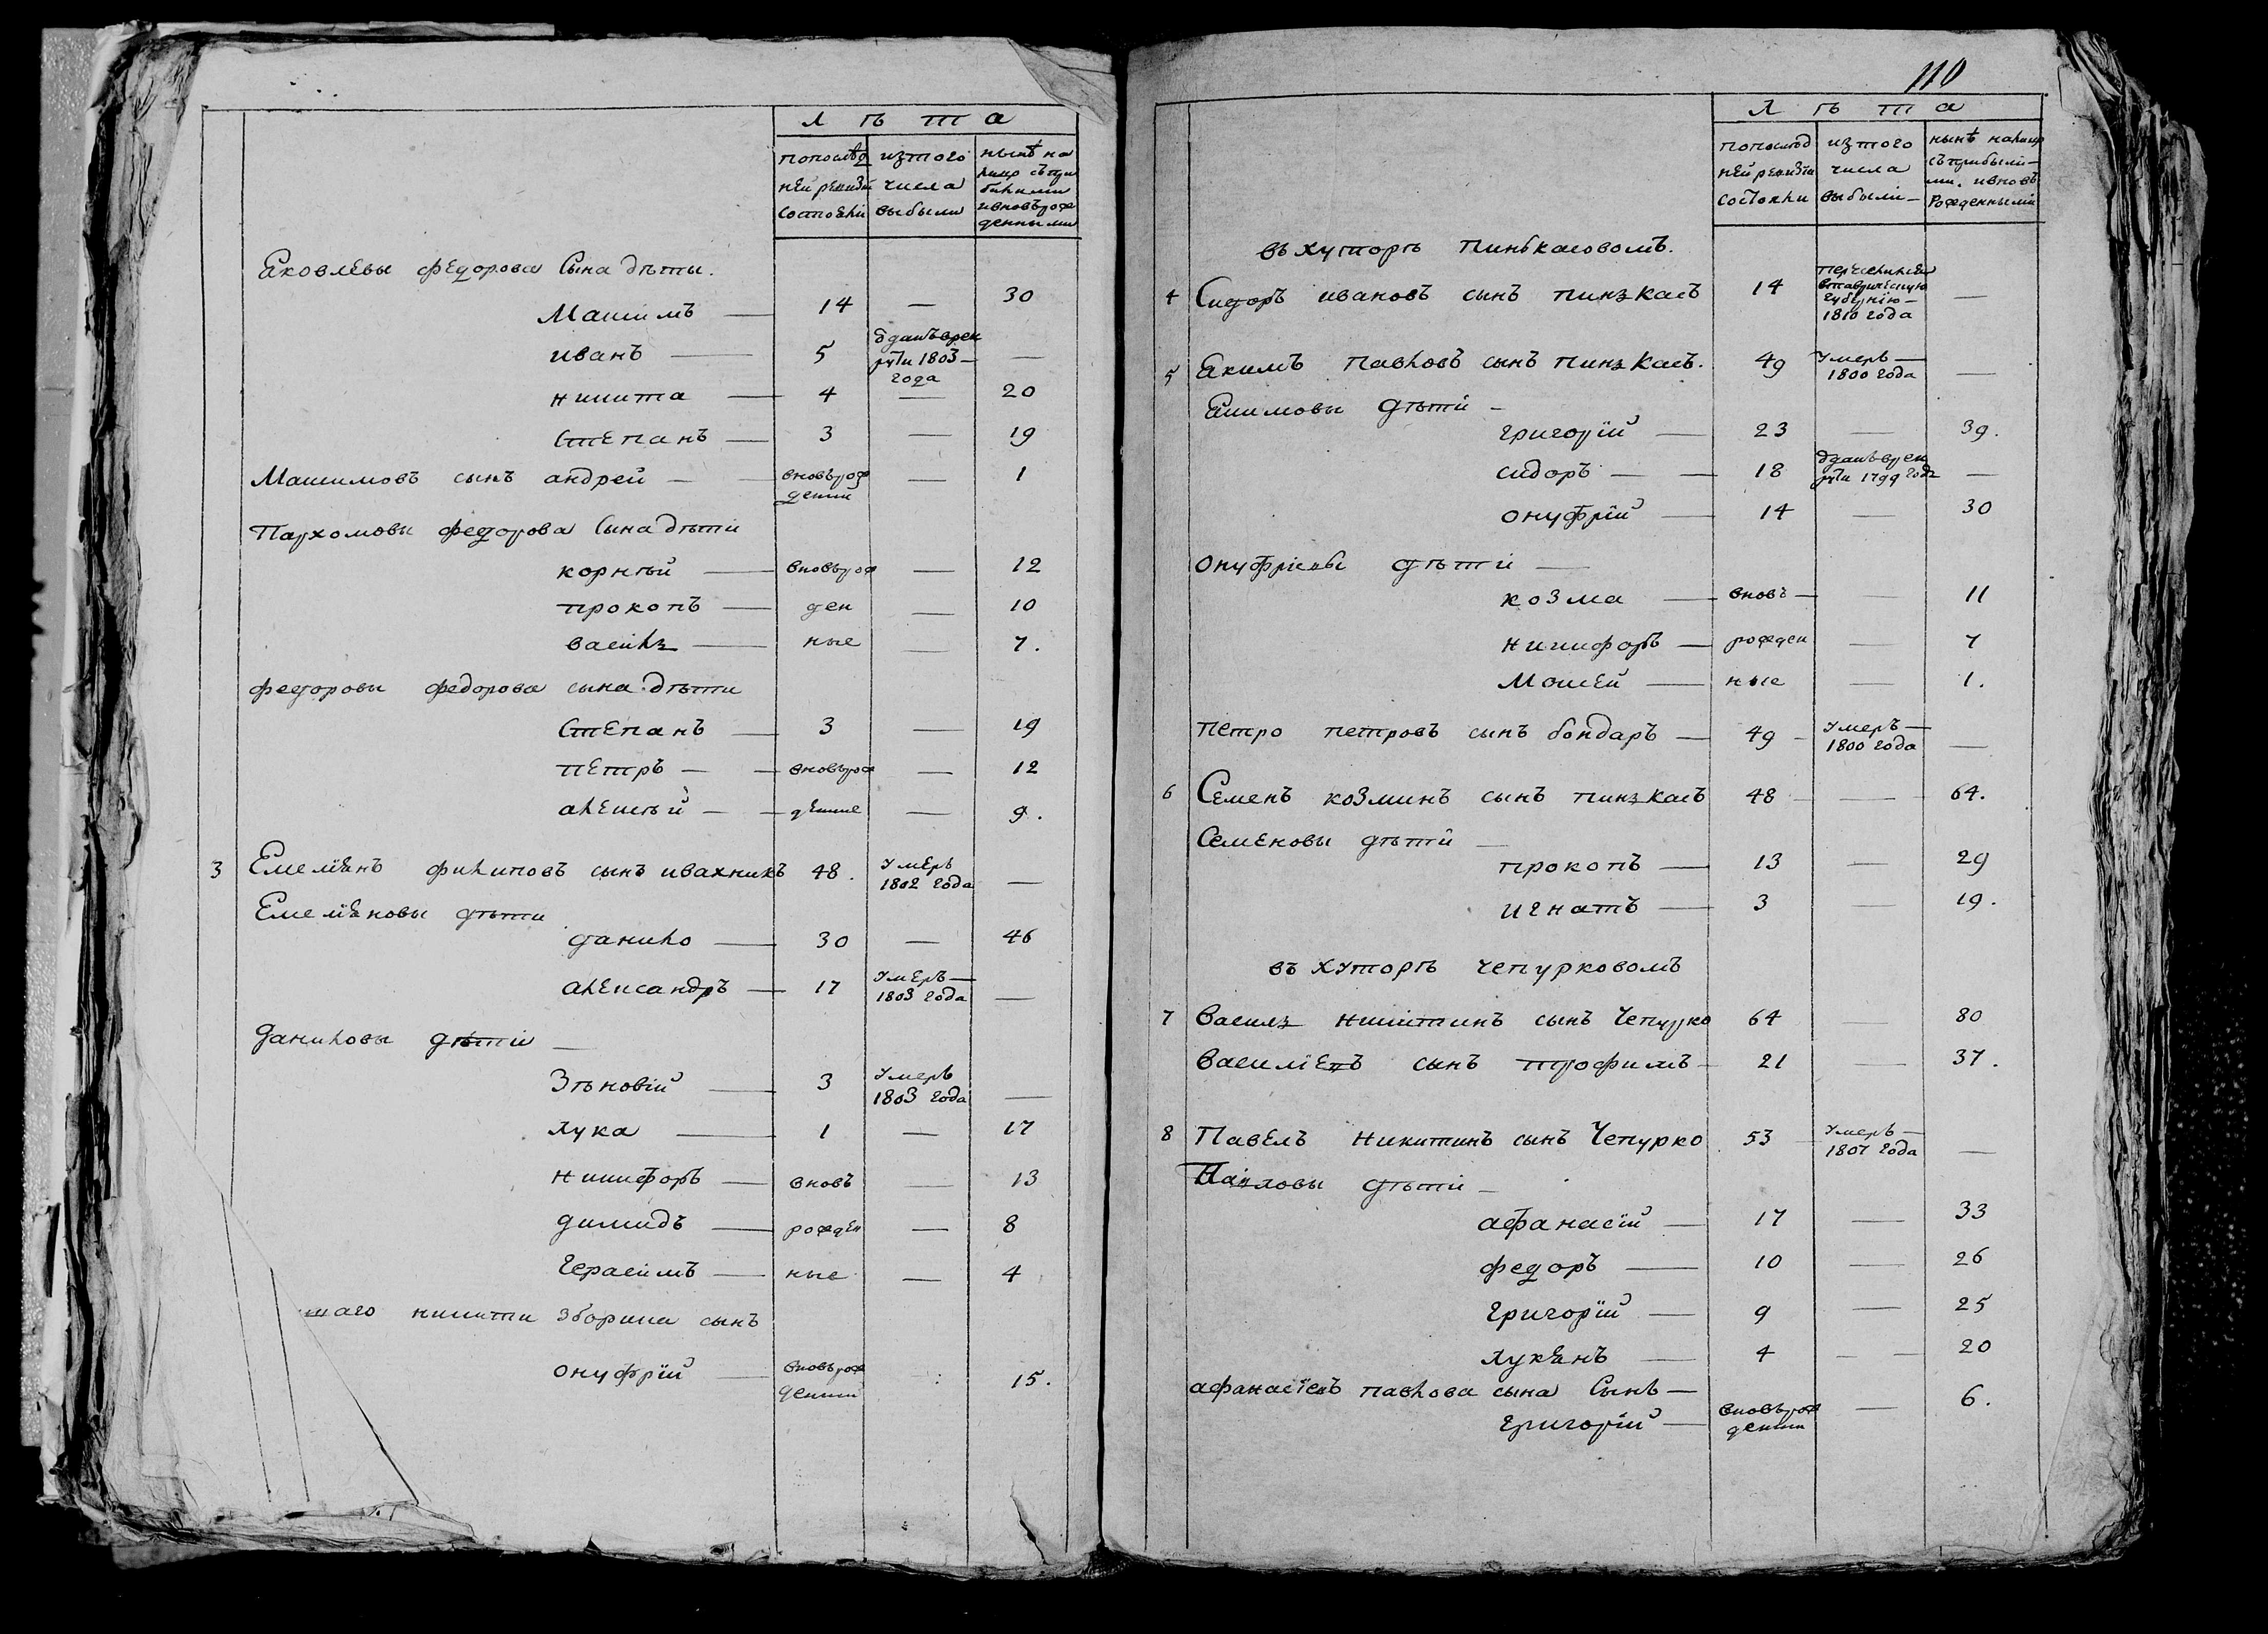 лѣта
попослѣд ней ревизіи состояли | изтого числа выбыли | нынѣ на лицо съ при былими ивновърож денными
Яковлевы Федорова Сына дѣти.
Максимъ — 14 — 30
иванъ — 5 отданъ врек
руты 1803 —
года
никита — 4 — 20
Степанъ — 3 — 19
Максимовъ сынъ андрей — вновърож — 1
денный
Пархомовы федорова Сына дѣти
корнѣй — вновърож — 12
прокопъ — ден — 10
василь — ные — 7.
федоровы федорова сына дѣти
Степанъ — 3 — 19
петръ — вновърож — 12
алексѣй — денные — 9.
3 Емелѣянъ филиповъ сынъ ивахникъ 48. умеръ
1802 года —
Емелѣяновы дѣти
данило — 30 — 46
александръ — 17 умеръ —
1803 года —
Даниловы дѣти —
Зѣновій — 3 умеръ
1803 года —
лука — 1 — 17
никифоръ — вновь — 13
димидъ — рожден — 8
Герасимъ — ные — 4
шаго никиты зборика сынъ
онуфрій — вновърож 15.
денный
110
лѣта
попослѣд ней ревизіи состояли | изтого числа выбыли — | нынѣ налицо съ прибыли— ми. ивновь Рожденными
въ хуторѣ Пинькасовомъ.
4 Сидоръ ивановъ сынъ пинькасъ 14 перечисленъ
втаврическую
губернію —
1810 года —
5 Якимъ павловъ сынъ пинькасъ. 49 умеръ —
1800 года —
Якимовы дѣти —
григорій — 23 — 39.
сидоръ — 18 отданъ врек
руты 1799 года —
онуфрій — 14 — 30
онуфріевы дѣти —
козма — вновь — — 11
никифоръ — рожден — 7
Мосей — ные — 1.
петро петровъ сынъ бондаръ — 49 — умеръ —
1800 года —
6 Семенъ козминъ сынъ пинькасъ 48 — 64.
Семеновы дѣти —
прокопъ — 13 — 29
игнатъ — 3 — 19.
въ хуторѣ чепурковомъ
7 василь никитинъ сынъ Чепурко 64 — 80
василіевъ сынъ трофимъ — 21 — 37.
8 Павелъ никитинъ сынъ Чепурко 53 умеръ —
1807 года —
Павловы дѣти —
афанасій — 17 — 33
федоръ — 10 — 26
григорій — 9 — 25
лукянъ — 4 — 20
афанасіевъ павлова сына Сынъ —
григорій — вновърож — 6.
денный